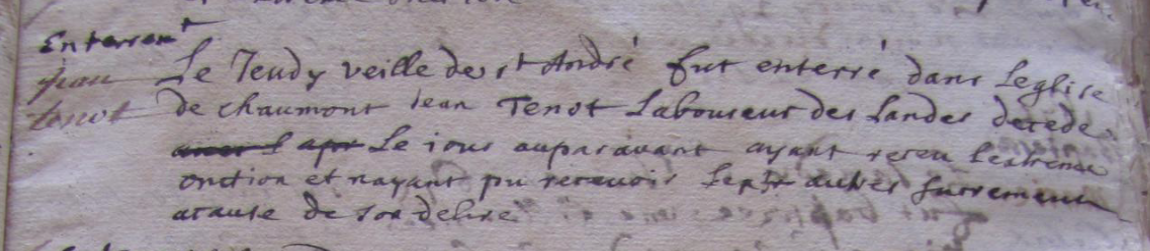 Enterremt
jean
tenot
Le Jeudy veille de st André fut enterré dans leglise
de chaumont Jean Tenot Laboureur des Landes decede
Le jour auparavant ayant receu lextreme
onction et nayant pu recevoir les autres sacrements
acause de son delire